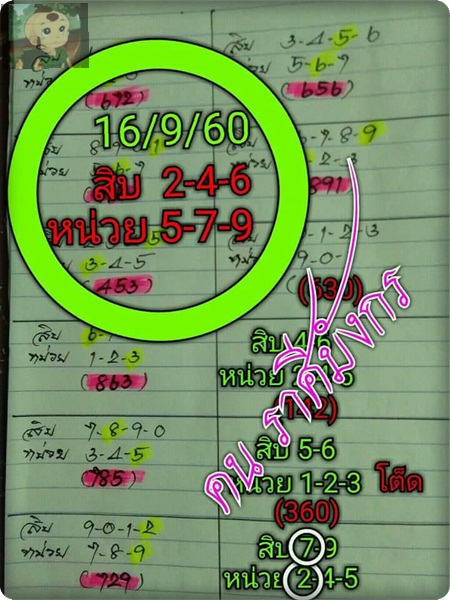 (692)
16/9/60
สิบ 2-4-6
หน่วย 5-7-9
3-4-5
(453)
หน่วย 1-2-3
(863)
สิบ 7-8-9-0
หน่วย 3-4-5
(785)
สิบ 9-0-1-2
หน่วย 7-8-9
(729)
สิบ 3-4-5-6
หน่วย 5-6-7
(656)
7-8-9
2-3
891
1-2-3
9-0-
(530)
สิบ 4-6
หน่วย
สิบ 5-6
หน่วย 1-2-3 โต็ด
(360)
สิบ 7-9
หน่วย 2-4-5
คน ราศีมังกร